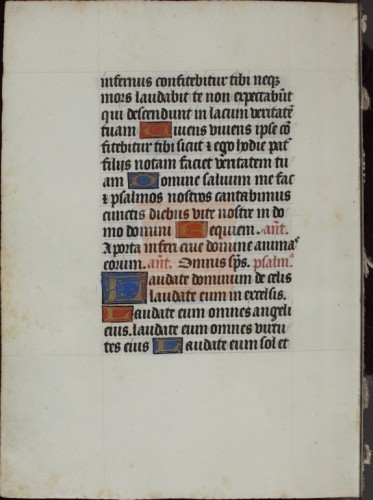 infernus confitebitur tibi neqz
mors laudabit te non expectabũt
qui descendunt in lacum veritatẽ
tuam Viuens viuens ipse cõ
fitebitur tibi sicut & ego hodie pat̃
filijs notam faciet veritatem tu
am Domine saluum me fac
& psalmos nostros cantabimus
cunctis diebus vite nostre in do
mo domini Requiem. añt.
A porta inferi erue domine animas
eorum. añt. Omnis sp̃s. psalm9
Laudate dominum de celis
laudate eum in excelsis.
Laudate eum omnes angeli
eius. laudate eum omnes virtu
tes eius Laudate eum sol et